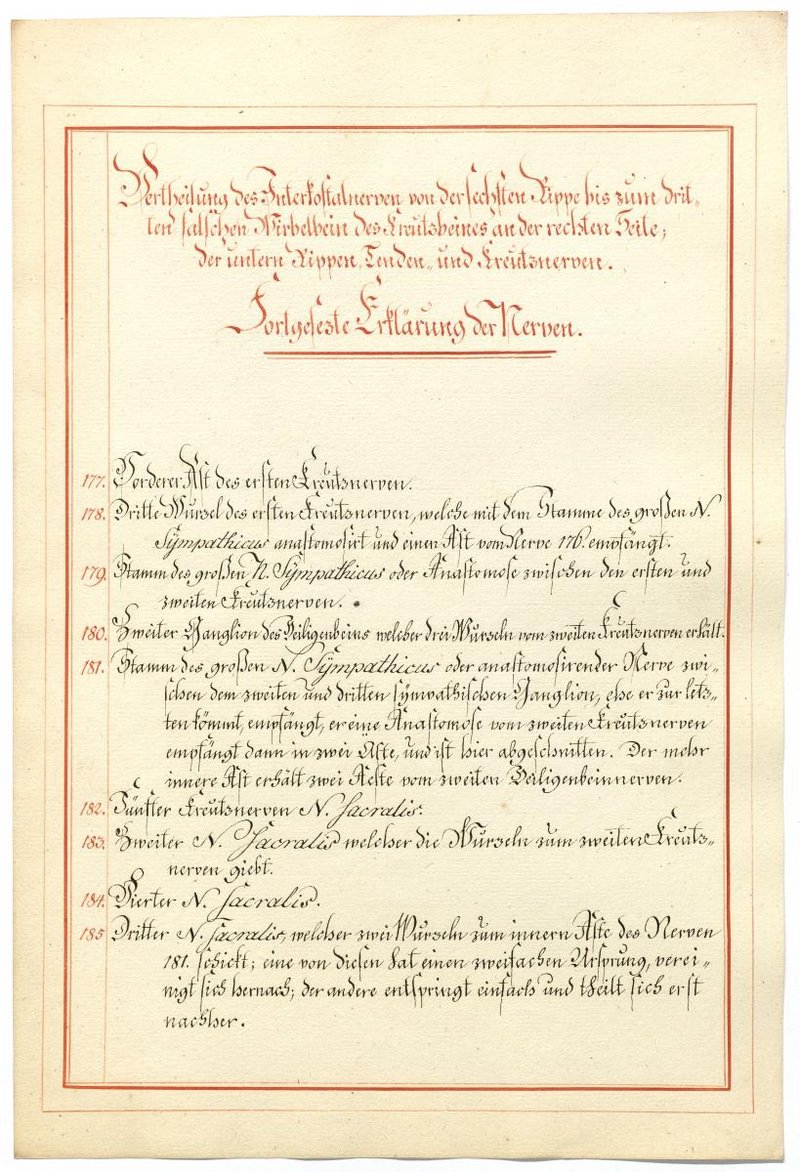 Vertheilung des Interkostalnerven von der sechsten Rippe bis zum drit-
ten falschen Wirbelbein des Kreutsbeines an der rechten Seite;
der untern Rippen, Lenden, und Kreutsnerven.
Fortgesezte Erklärung der Nerven.
177. Vorderer Ast des ersten Kreutsnerven.
178. Dritte Wursel des ersten Kreutsnerven, welche mit dem Stamme des großen N.
Sÿmpathicus anastomosirt und einen Ast vom Nerve 176. empfängt.
179. Stamm des großen N. Sÿmpathicus oder Anastomose zwischen den ersten und
zweiten Kreutsnerven.
180. Zweiter Ganglion des Heiligenbeins welcher drei Wurseln vom zweiten Kreutsnerven erhält.
181. Stamm des großen N. Sÿmpathicus oder anastomosirender Nerve zwi-
schen dem zweiten und dritten sÿmpathischen Ganglion, ehe er zur letz-
ten kömmt, empfängt, er eine Anastomose vom zweiten Kreutsnerven
empfängt dann in zwei Aste, und ist hier abgeschnitten. Der mehr
innere Ast erhält zwei Aeste vom zweiten Heiligenbeinnerven.
182. Fünfter Kreutsnerven N. sacralis.
183. Zweiter N. Sacralis welcher die Wurseln zum zweiten Kreuts-
nerven giebt.
184. Vierter N. sacralis.
185 Dritter N. sacralis, welcher zwei Wurseln zum innern Aste des Nerven
181. schickt; eine von diesen hat einen zweifachen Ursprung, verei-
nigt sich hernach; der andere entspringt einfach und theilt sich erst
nachher.